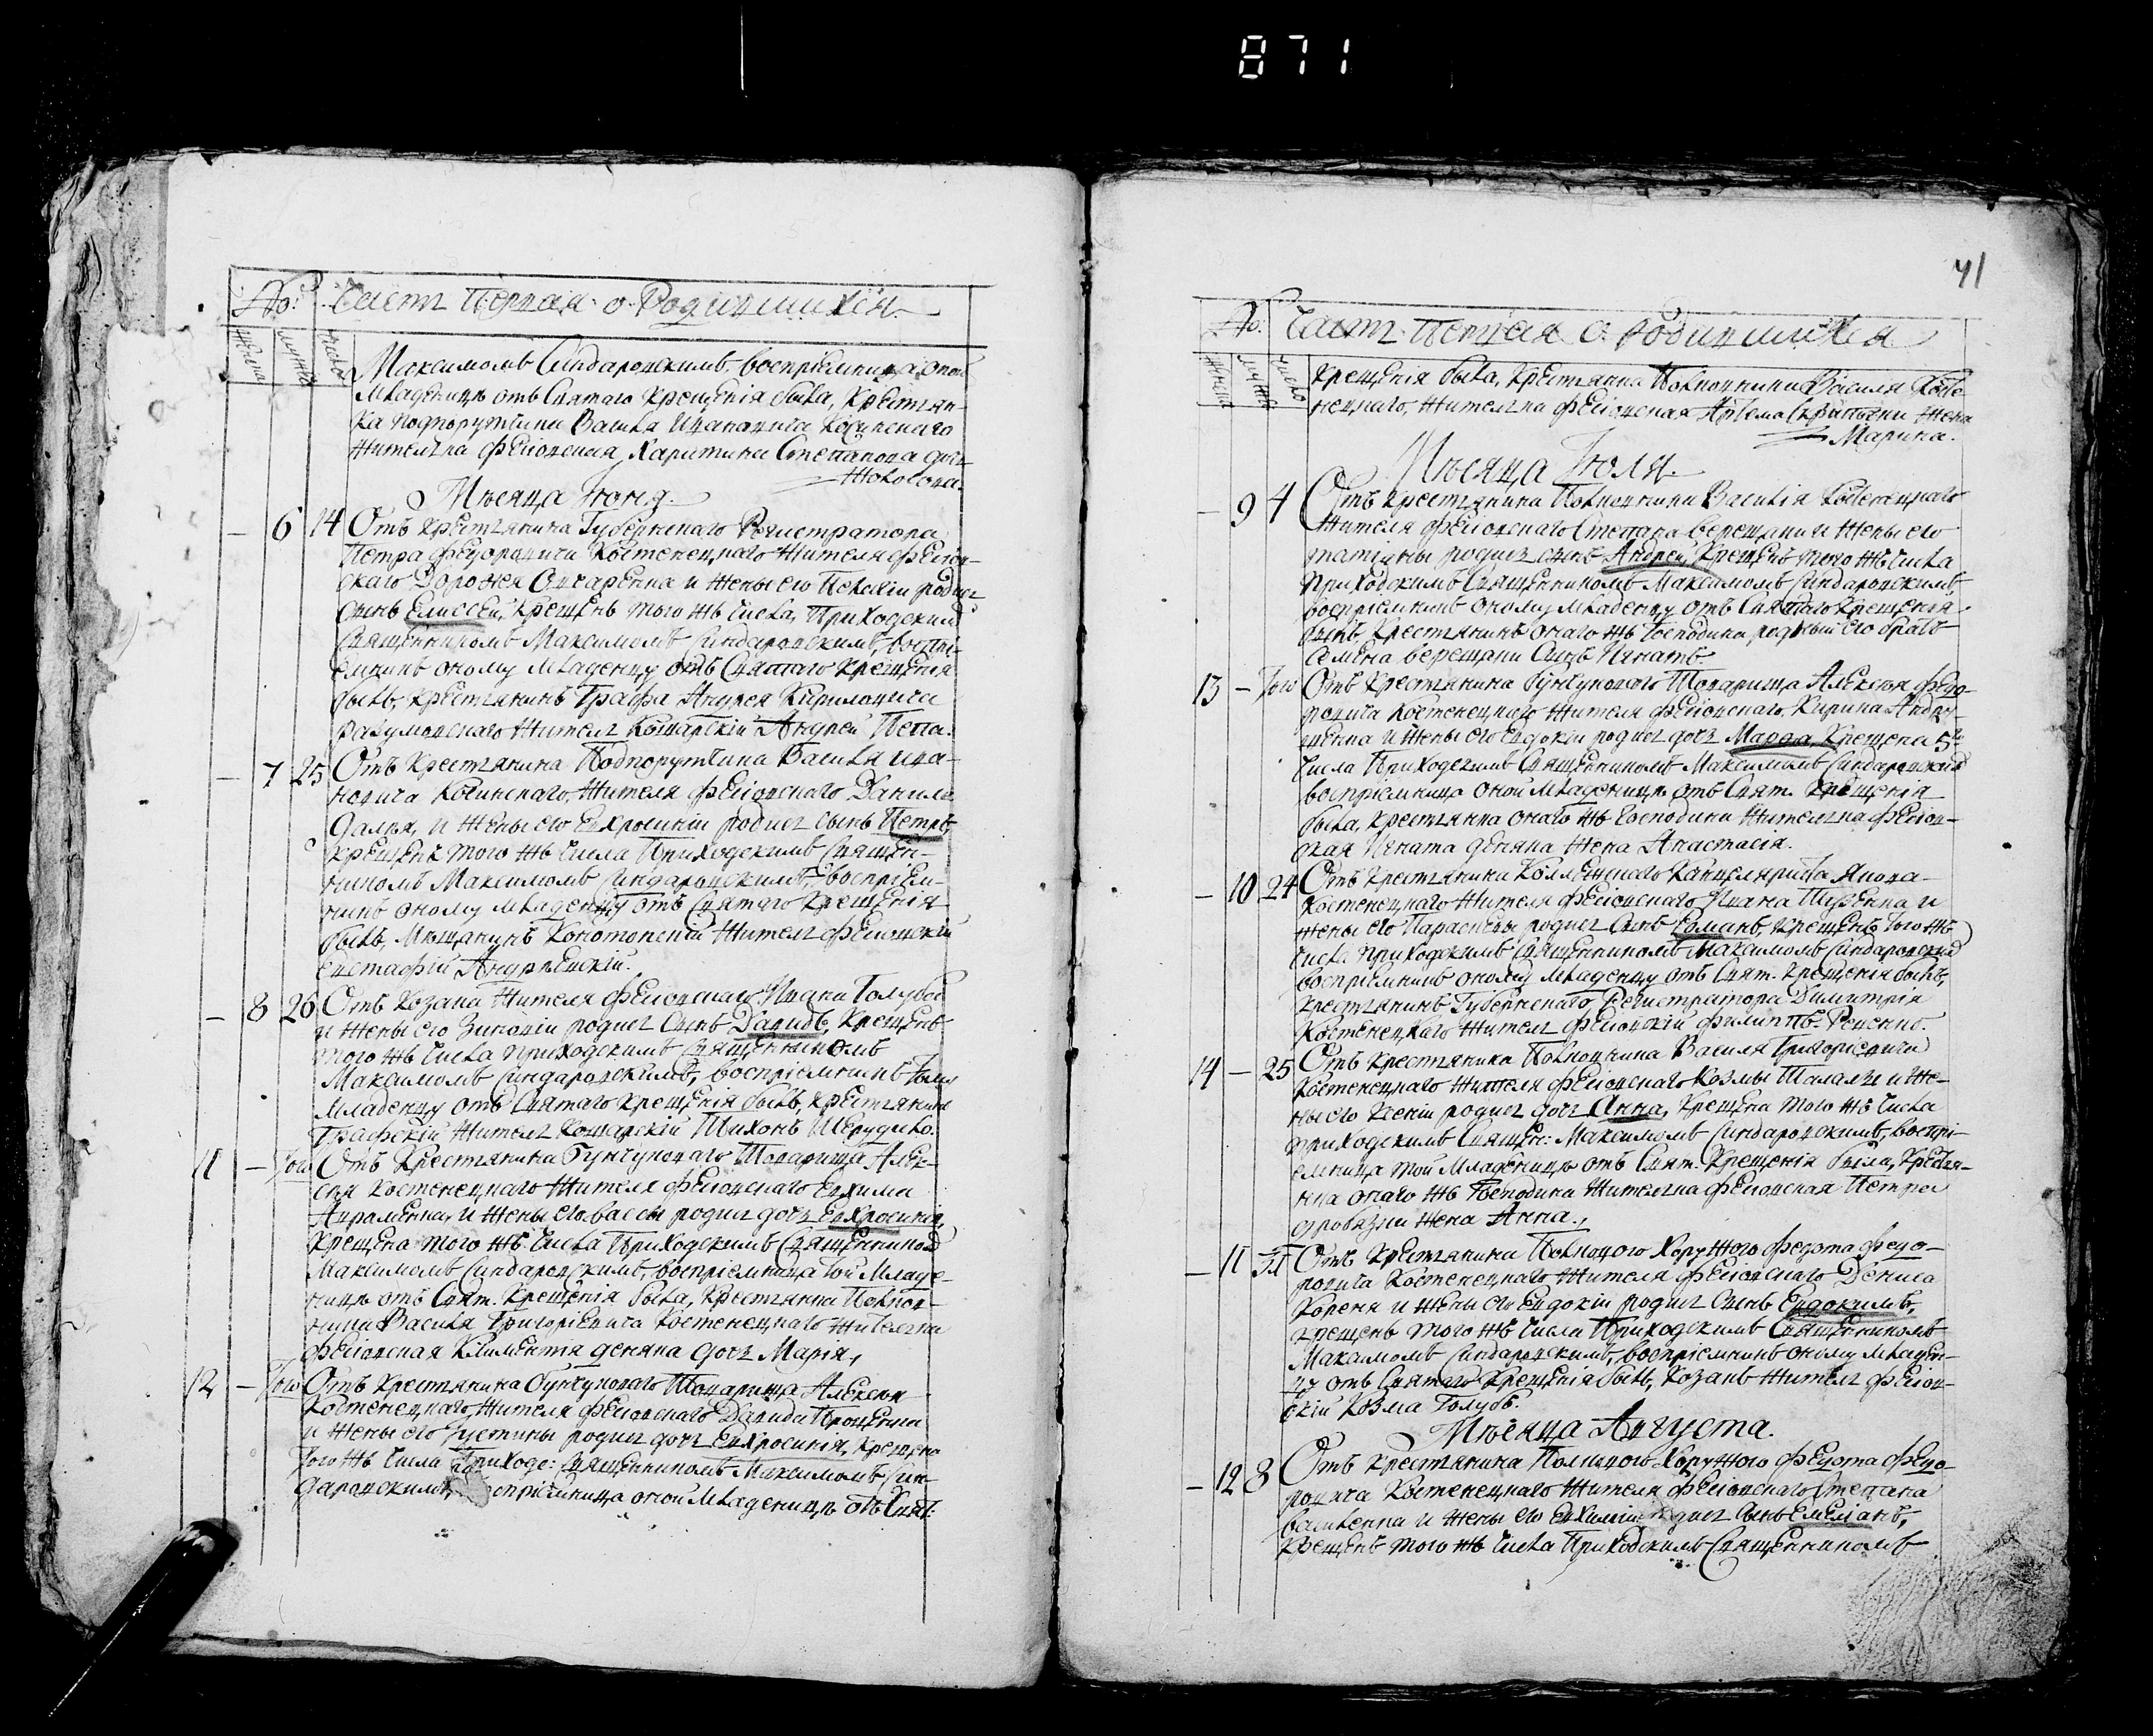 871
No: Часть Первая о Родившихся
женска мужеска число
Максимомъ Синдаровскимъ, восприемница оной
Младеницѣ отъ Святаго Крещенія была, Крестян-
ка подпорутчика Василя Ивановича Косинского
жителка фесювская Харитини Степанова дочь
Мѣсяца Июня.
6 14 Отъ крестянина Губернского Регистратора
Петра Федоровича Костенецкаго жителя фесюв-
скаго Дорожея Овчаренка и жены его Пелагіи родися
сынъ Елиссей, крещенъ того жъ числа, Приходскимъ
Священникомъ Максимомъ Синдаровскимъ, воспрі-
емникъ оному младенцу отъ Святаго крещенія
былъ, крестянинъ Графа Андрея Кириловича
Разумовскаго жител Кошарскій Андрей
7 25 Отъ Крестянина Подпорутчика Василя Ива-
новича Косинскаго, жителя фесювского Данила
Даля, и жены его Евхросиніи родися сынъ Петръ,
крещенъ того жъ числа Приходскимъ Священ-
никомъ Максимомъ Синдаровскимъ, восприем-
никъ оному младенцу отъ Святаго крещенія
былъ, Мѣщанинъ Конотопскій жител фесювскій
Евстафій Андрѣевскій.
8 26 Отъ Козака жителя фесювскаго Ивана Голуба
и жены его Зиновіи родися Сынъ Давидъ, крещенъ
того жъ числа приходскимъ Священникомъ
Максимомъ Синдаровскимъ, восприемникъ тому
Младенцу отъ Святаго крещенія былъ, крестянинъ
Графскій жител Кошарскій Тихонъ Шерудило.
11 – Того Отъ Крестянина Бунчукового Товарища Алек-
сѣя Костенецкаго жителя фесювскаго Евхима
Авраменка, и жены его Вассы родися дочь Евхросинія,
крещена того жъ числа Приходскимъ Священникомъ
Максимомъ Синдаровскимъ, восприемница той Младе-
ницѣ отъ Свят. Крещенія была, крестянка Полков-
ника Василя Григоріевича Костенецкаго жителка
фесювская Климентія деняка дочь Марія.
12 – Того Отъ Крестянина бунчукового Товарища Алексѣя
Костенецкаго жителя фесювскаго Давида Проценка
и жены его Густины родися дочь Евхросинія, крещена
Того жъ числа Приходс: Священникомъ Максимомъ Син-
даровскимъ, восприемница оной Младеницѣ отъ Свят:
41
No: Часть Первая о Родившихся
женска мужеска число
крещенія была, крестянка Полковника Василя Косте-
нецкаго, жителка фесювская Артема жена
Марина.
Мѣсяца Июля.
9 4 Отъ крестянина Полковника Василія Костенецкаго
жителя фесювскаго Степана верещаки и жены его
татіяны родися сынъ Андрей, крещенъ того жъ числа
приходскимъ Священникомъ Максимомъ Синдаровскимъ,
восприемникъ оному младенцу отъ Святаго крещенія
былъ, Крестянинъ онаго жъ Господина родный его братъ
Семена верещаки Сынъ Игнатъ.
13 – Того Отъ Крестянина бунчукового Товарища Алексѣя Федо-
ровича Костенецкаго жителя фесювскаго, Кирила Андру-
щенка и жены его Евдокіи родися дочь Марфа, крещена 5го
числа Приходскимъ Священникомъ Максимомъ Синдаровскимъ
восприемница оной Младеницѣ отъ Свят. крещенія
была, крестянка онаго жъ Господина жителка фесюв-
ская Игната деняка жена Анастасія.
10 24 Отъ Крестянина Коллежского Канцеляриста Якова
Костенецкаго жителя фесювскаго Ивана и
жены его Параскевы родися Сынъ Романъ, крещенъ Того жъ
числа приходскимъ Священникомъ Максимомъ Синдаровским
восприемникъ оному младенцу отъ Свят. крещенія былъ,
крестянинъ Губернского Регистратора Димитрія
Костенецкаго жител фесювскій филиппъ Реценко.
14 – 25 Отъ Крестянина Полковника Василя Григоріевича
Костенецкаго жителя фесювскаго Козмы и же-
ны его Ксеніи родися дочь Анна, крещена того жъ числа
приходскимъ Священ: Максимомъ Синдаровскимъ, воспрі-
емница той Младеницѣ отъ Свят. Крещенія была, Крестян-
ка онаго жъ Господина жителка фесювская Петра
дробязки жена Анна.
11 31 Отъ Крестянина Полкового Хоружого Федота Федо-
ровича Костенецкаго жителя фесювскаго Дениса
Кореня и жены его Евдокіи родися сынъ Евдокимъ,
крещенъ того жъ числа Приходскимъ Священникомъ
Максимомъ Синдаровскимъ, восприемникъ оному младен-
цу отъ Святаго крещенія былъ, Козакъ жител фесюв-
скій Козма Голубъ.
Мѣсяца Августа.
12 8 Отъ Крестянина Полкового Хоружого Федота Федо-
ровича Костенецкаго жителя фесювскаго Степана
василенка и жены его Евхиміи родися Сынъ Емеліанъ,
крещенъ того жъ числа Приходскимъ Священникомъ